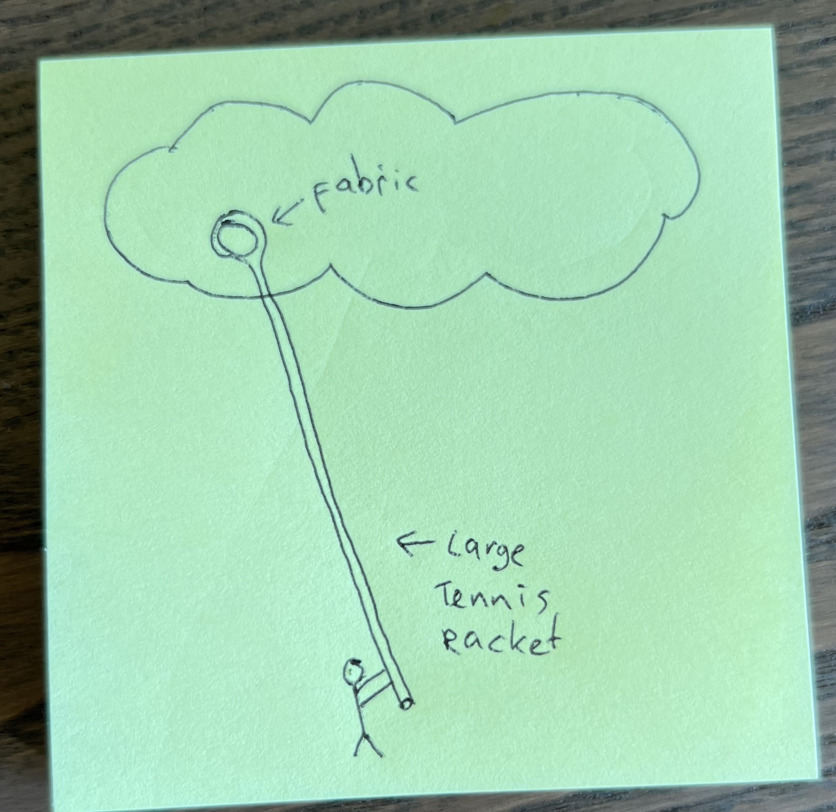 Fabric
Large
Tennis
Racket